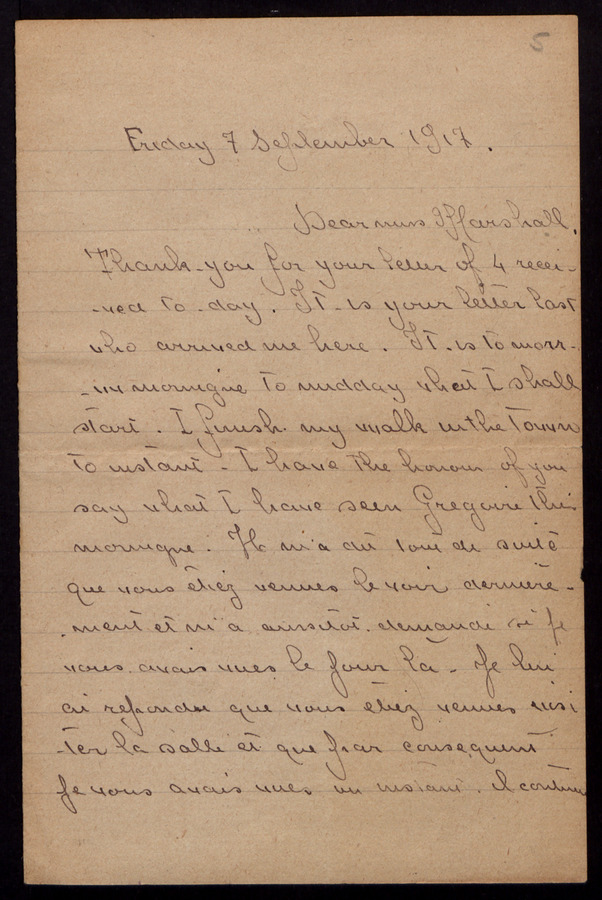 5
Friday 7 September 1917.
Dear miss Marshall.
Thank-you for your letter of 4 recei-
-ved to-day. It-is your letter last
who arrived me here. It-is tomorr-
-ow mornigne to midday what I shall
start. I finish my walk in the Town
to instant - I have the honour of you
say what I have seen Gregoire this
mornigne. Il m'a dit tout de suite
que vous étiez venues le voir dernière-
-ment et m'a aussitot demandé si je
vous avais vues le jour là - Je lui
ai repondu que vous étiez venues visi
-ter la salle et que par consequent
Je vous avais vues un instant. il continu